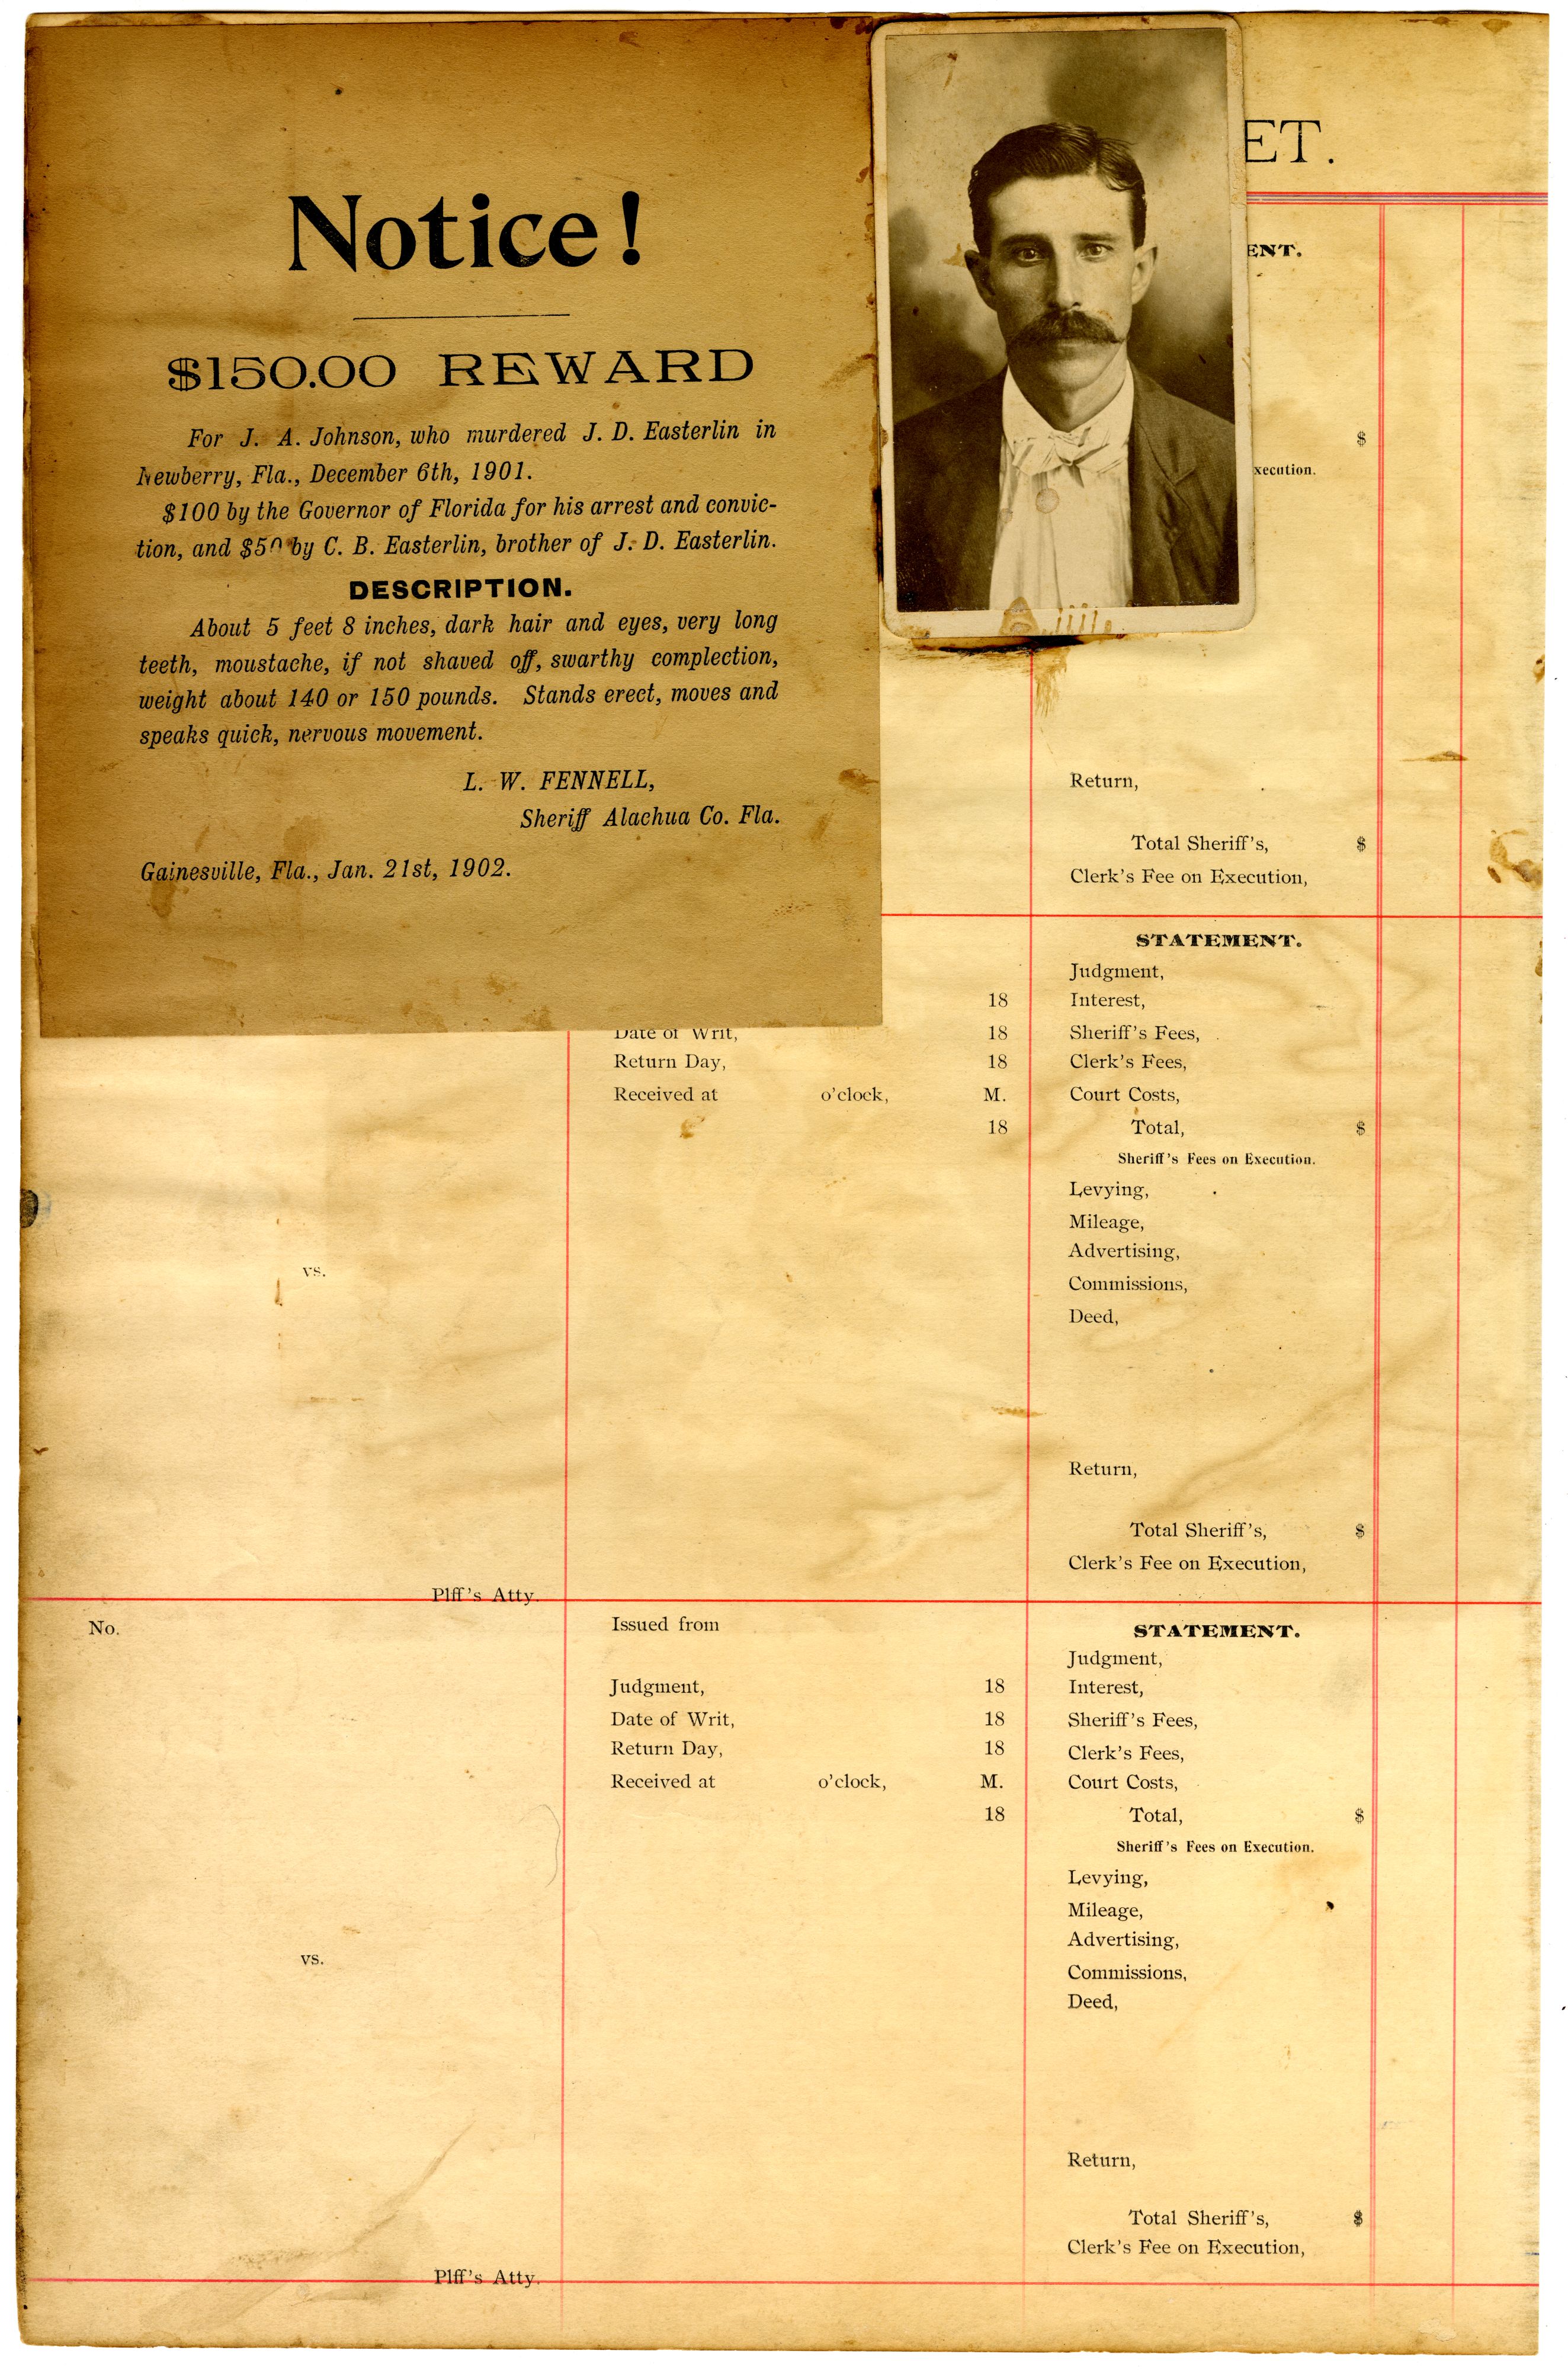 Notice!
$150.00 REWARD
For J. A. Johnson, who murdered J. D. Easterlin in
Newberry, Fla., December 6th, 1901.
$100 by the Governor of Florida for his arrest and convic-
tion, and $50 by C. B. Easterlin, brother of J. D. Easterlin.
DESCRIPTION.
About 5 feet 8 inches, dark hair and eyes, very long
teeth, moustache, if not shaved off, swarthy complection,
weight about 140 or 150 pounds. Stands erect, moves and
speaks quick, nervous movement.
L. W. FENNELL,
Sheriff Alachua Co. Fla.
Gainesville, Fla., Jan. 21st, 1902.
ET.
ENT.
$
xecution.
Return,
Total Sheriff's, $
Clerk's Fee on Execution,
18
Date of Writ, 18
Return Day, 18
Received at o'clock, M.
18
vs.
Plff's Atty.
STATEMENT.
Judgment,
Interest,
Sheriff's Fees,
Clerk's Fees,
Court Costs,
Total, $
Sheriff's Fees on Execution.
Levying,
Mileage,
Advertising,
Commissions,
Deed,
Return,
Total Sheriff's, $
Clerk's Fee on Execution,
No.
vs.
Plff's Atty.
Issued from
Judgment, 18
Date of Writ, 18
Return Day, 18
Received at o'clock, M.
18
STATEMENT.
Judgment,
Interest,
Sheriff's Fees,
Clerk's Fees,
Court Costs,
Total, $
Sheriff's Fees on Execution.
Levying,
Mileage,
Advertising,
Commissions,
Deed,
Return,
Total Sheriff's, $
Clerk's Fee on Execution,